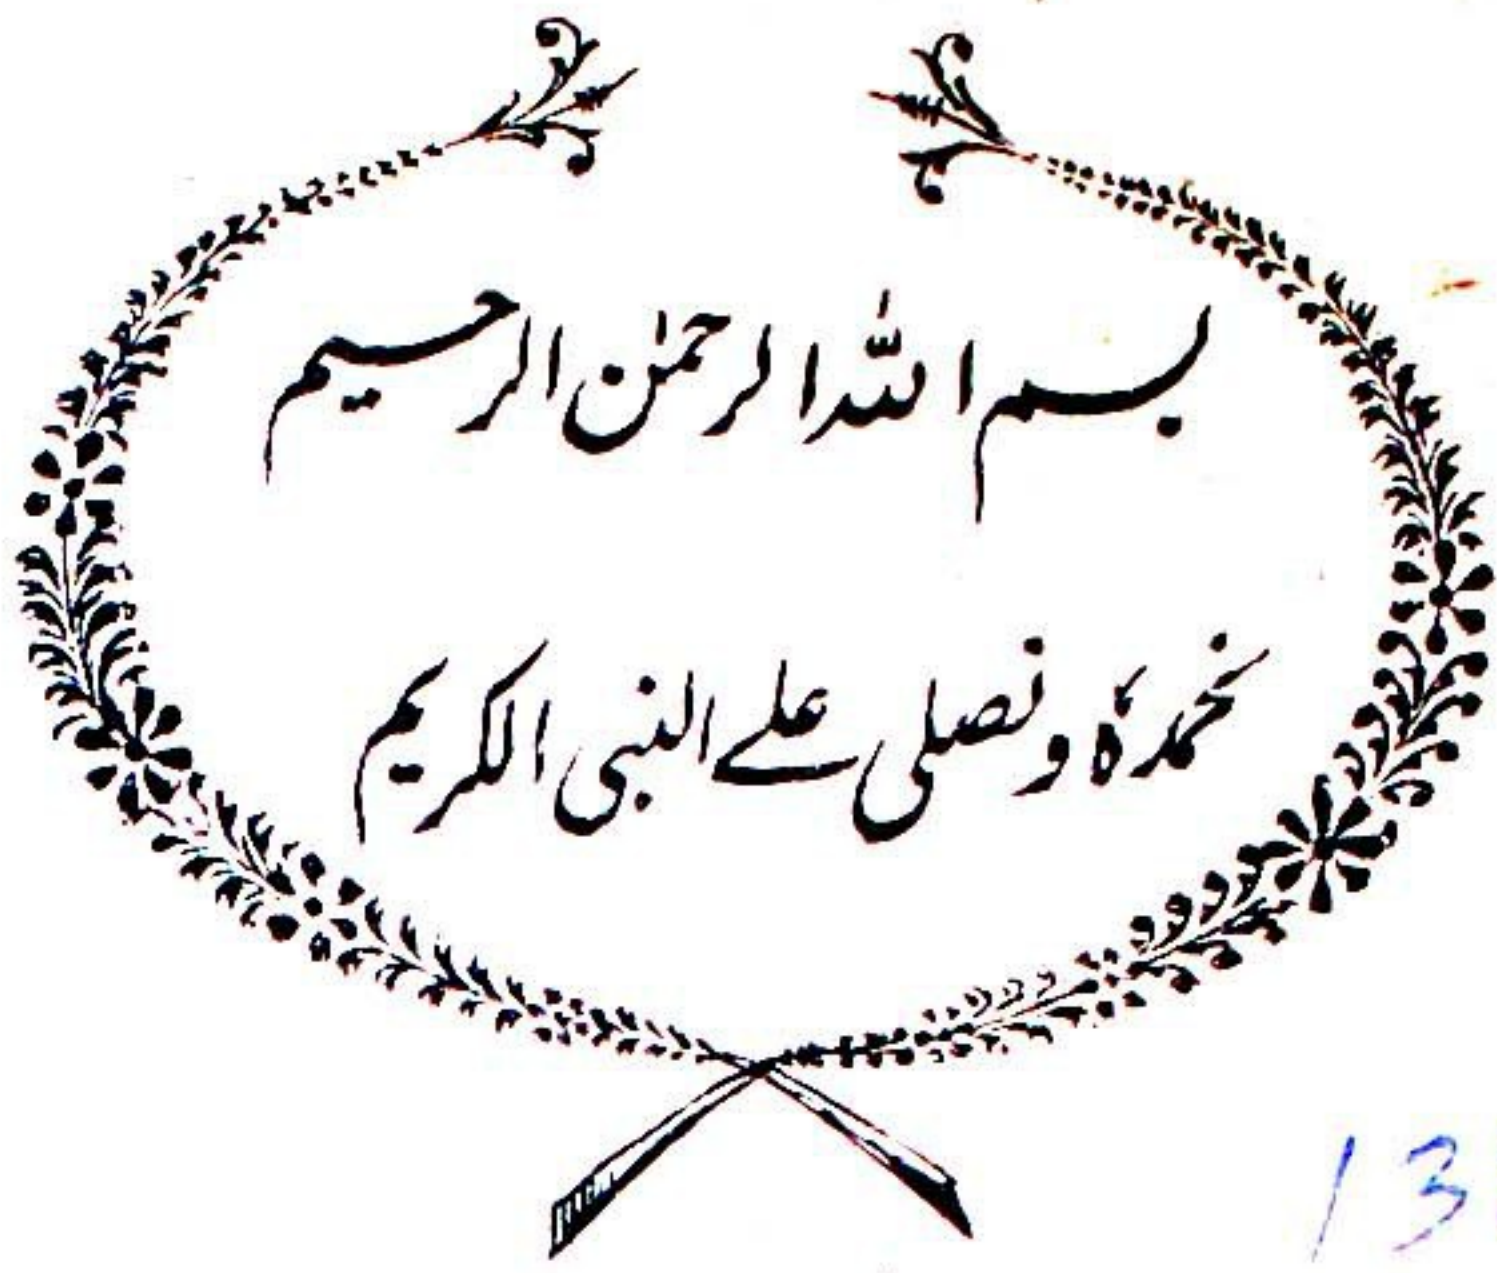 بسم اللہ الرحمٰن الرحیم
نحمدہٗ و نصلی علے النبی الکریم
13